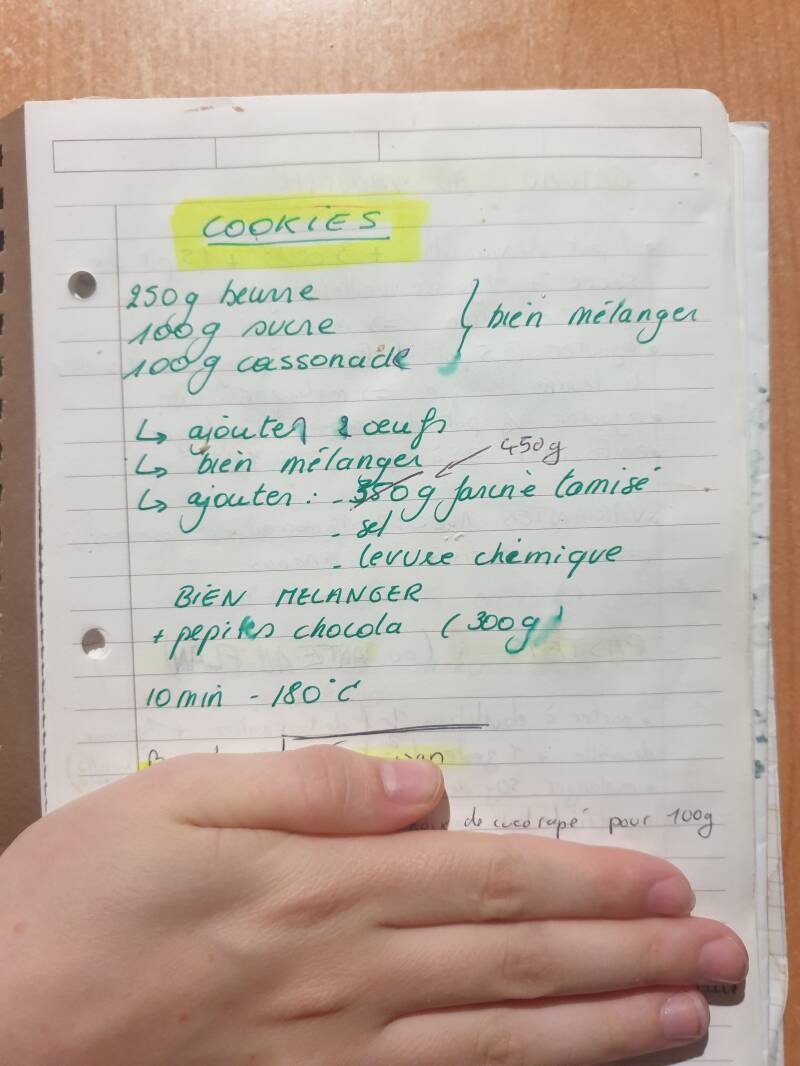 COOKIES
250g beurre
100g sucre
100g cassonade
bien mélanger
↳ ajouter 2 œufs
↳ bien mélanger
450g
↳ ajouter : - 350g farine tamisé
- sel
- levure chimique
BIEN MELANGER
+ pepites chocola (300g)
10 min - 180°C
de coco rapé pour 100g